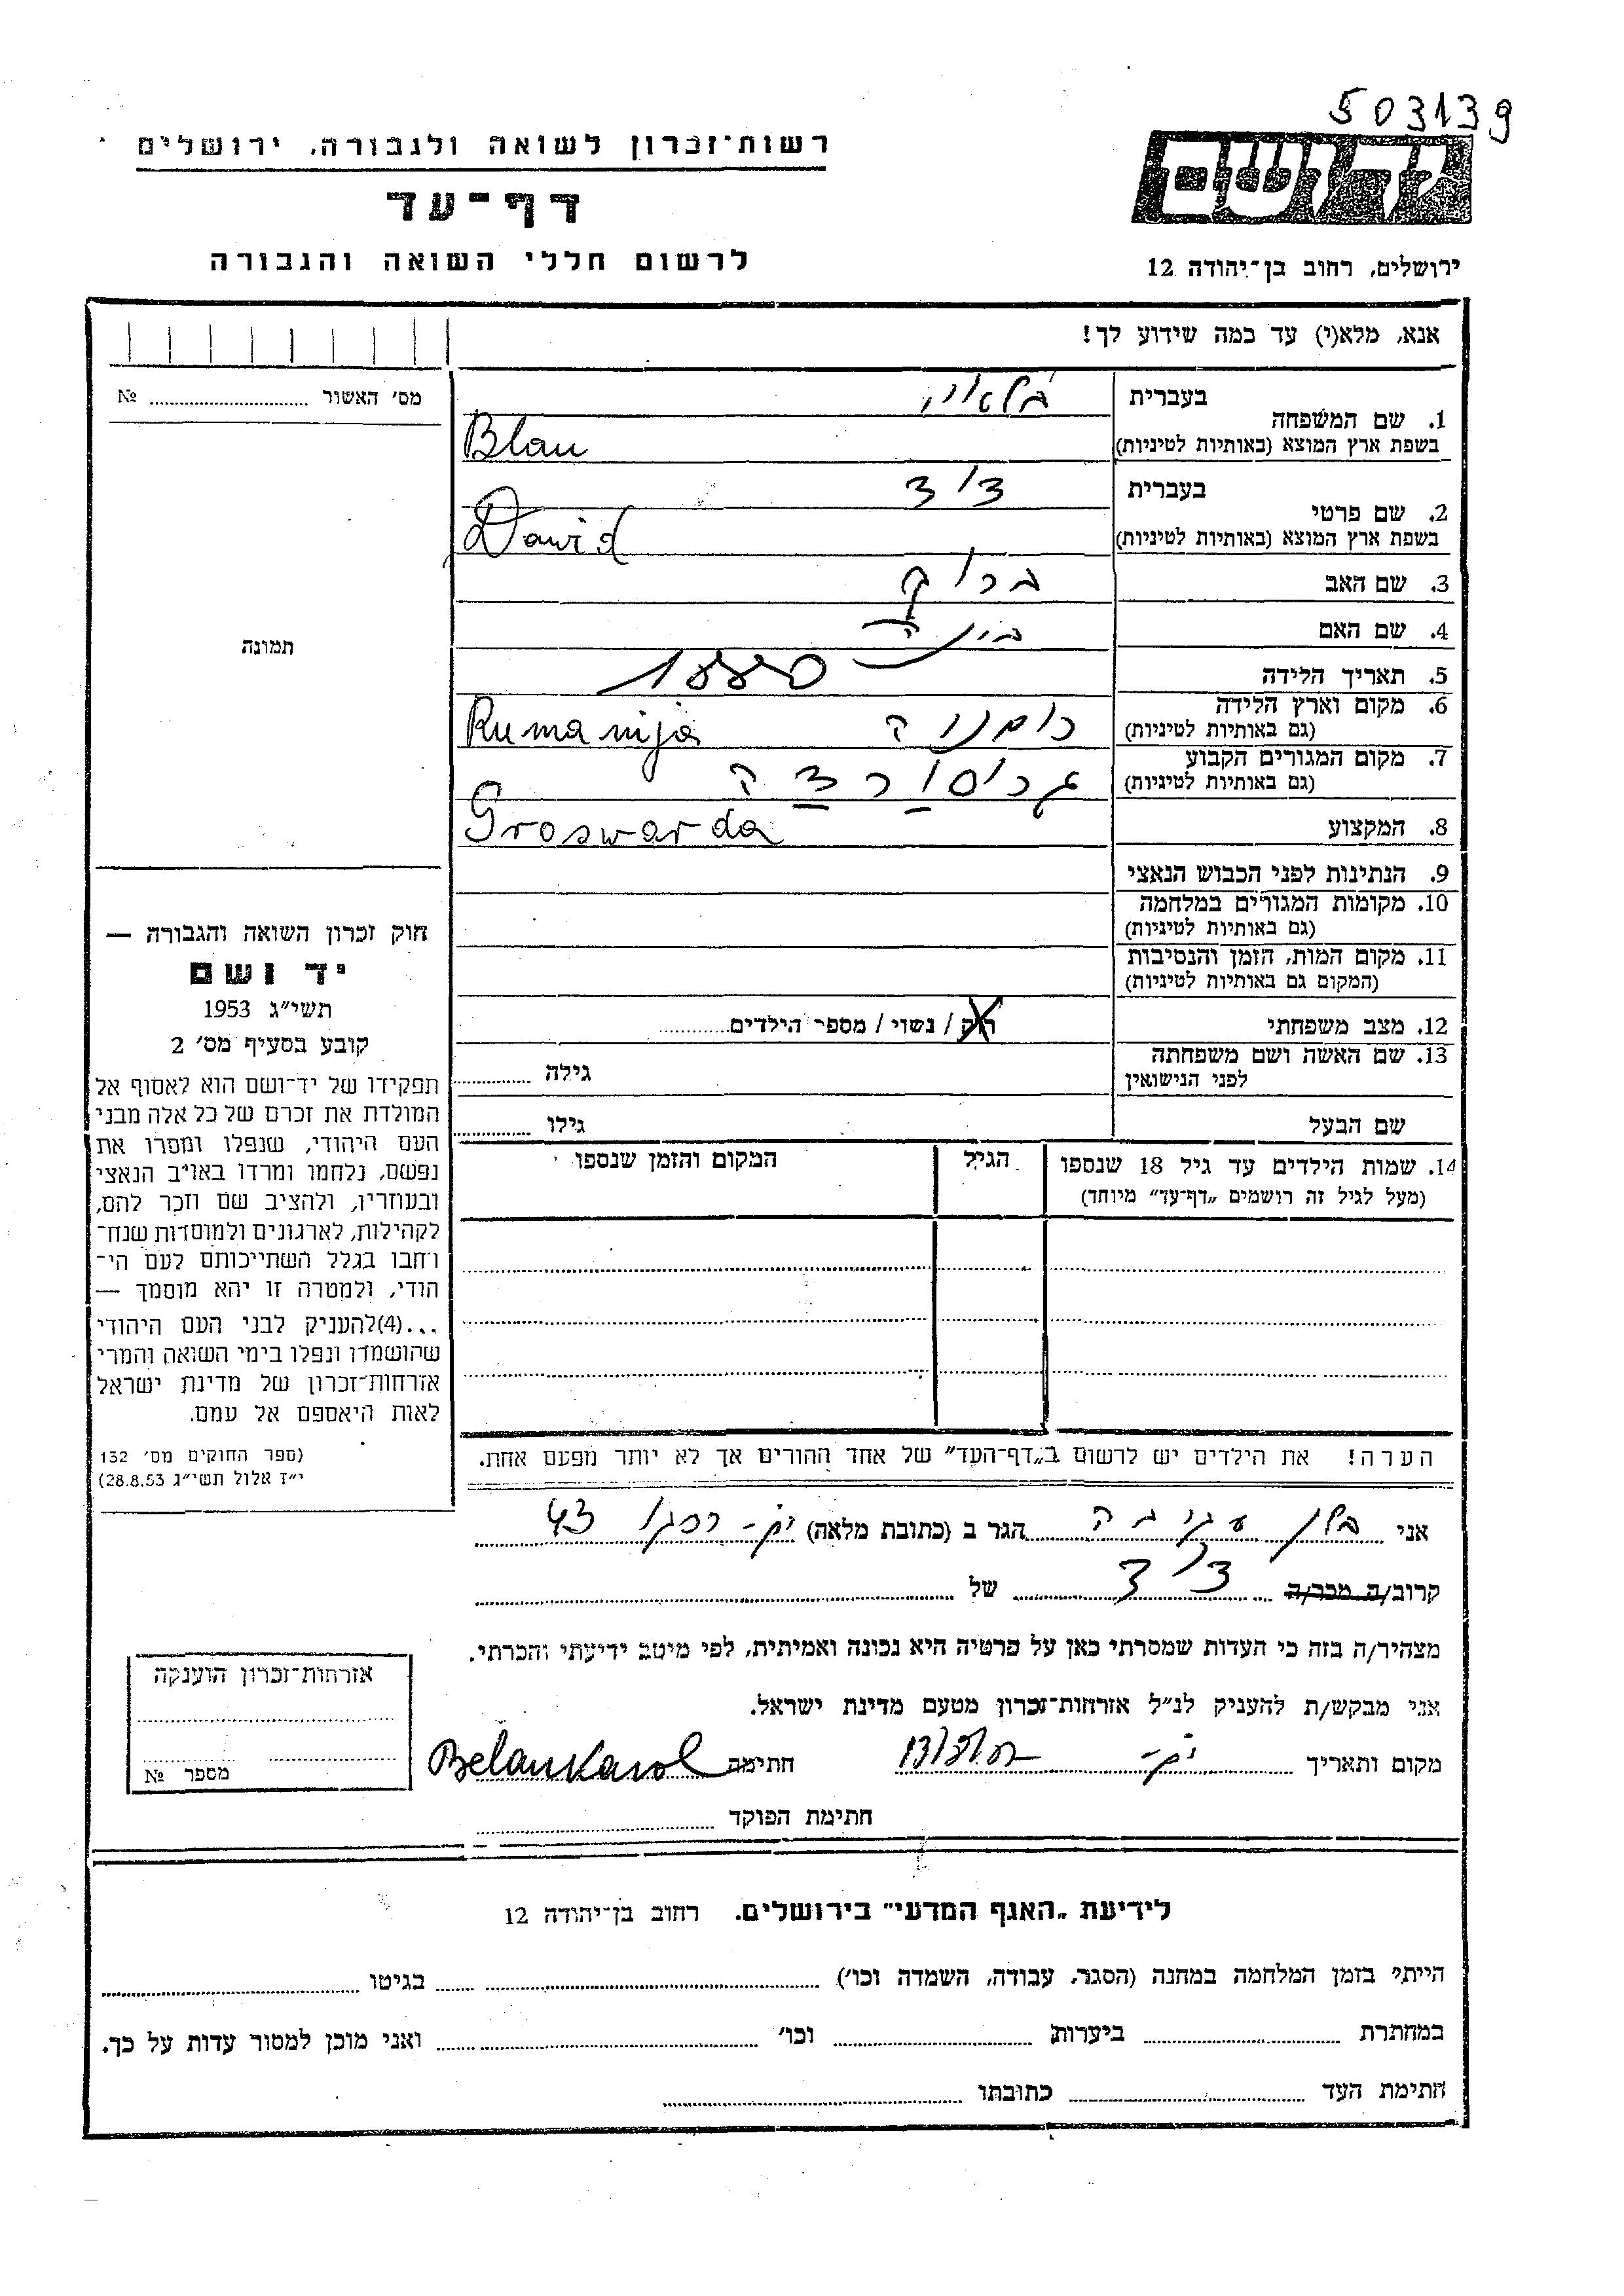 503139
יד ושם
רשות־זכרון לשואה ולגבורה, ירושלים
דף־עד
לרשום חללי השואה והגבורה
ירושלים, רחוב בן־יהודה 12
אנא, מלא(י) עד כמה שידוע לך!
מס׳ האשור № 
תמונה
חוק זכרון השואה והגבורה —
יד ושם
תשי״ג 1953
קובע בסעיף מס׳ 2
תפקידו של יד־ושם הוא לאסוף אל
המולדת את זכרם של כל אלה מבני
העם היהודי, שנפלו ומסרו את
נפשם, נלחמו ומרדו באויב הנאצי
ובעוזריו, ולהציב שם וזכר להם,
לקהילות, לארגונים ולמוסדות שנח־
רחבו בגלל השתייכותם לעם הי־
הודי, ולמטרה זו יהא מוסמך —
...(4)להעניק לבני העם היהודי
שהושמדו ונפלו בימי השואה והמרי
אזרחות־זכרון של מדינת ישראל
לאות היאספם אל עמם.
(ספר החוקים מס׳ 132
י״ז אלול תשי״ג 28.8.53)
בעברית
1. שם המשפחה
בשפת ארץ המוצא (באותיות לטיניות) Blau
בעברית דוד
2. שם פרטי
בשפת ארץ המוצא (באותיות לטיניות) Dawid
3. שם האב ברוך
4. שם האם
5. תאריך הלידה 1880
6. מקום וארץ הלידה רומניה Rumanija
(גם באותיות לטיניות)
7. מקום המגורים הקבוע גרוסורדה
(גם באותיות לטיניות)
8. המקצוע Groswarda
9. הנתינות לפני הכבוש הנאצי
10. מקומות המגורים במלחמה
(גם באותיות לטיניות)
11. מקום המות, הזמן והנסיבות
(המקום גם באותיות לטיניות)
12. מצב משפחתי רוק / נשוי / מספר הילדים
13. שם האשה ושם משפחתה
לפני הנישואין גילה
שם הבעל גילו
14. שמות הילדים עד גיל 18 שנספו הגיל המקום והזמן שנספו
(מעל לגיל זה רושמים „דף־עד״ מיוחד)
הערה! את הילדים יש לרשום ב„דף־העד״ של אחד ההורים אך לא יותר מפעם אחת.
אני בלו הגר ב (כתובת מלאה) 43
קרוב/ה מכר/ה דוד של
מצהיר/ה בזה כי העדות שמסרתי כאן על פרטיה היא נכונה ואמיתית, לפי מיטב ידיעתי והכרתי.
אני מבקש/ת להעניק לנ״ל אזרחות־זכרון מטעם מדינת ישראל.
מקום ותאריך חתימה
חתימת הפוקד
אזרחות־זכרון הוענקה
מספר №
לידיעת „האגף המדעי״ בירושלים. רחוב בן־יהודה 12
הייתי בזמן המלחמה במחנה (הסגר, עבודה, השמדה וכו׳) בגיטו
במחתרת ביערות וכו׳ ואני מוכן למסור עדות על כך.
חתימת העד כתובתו